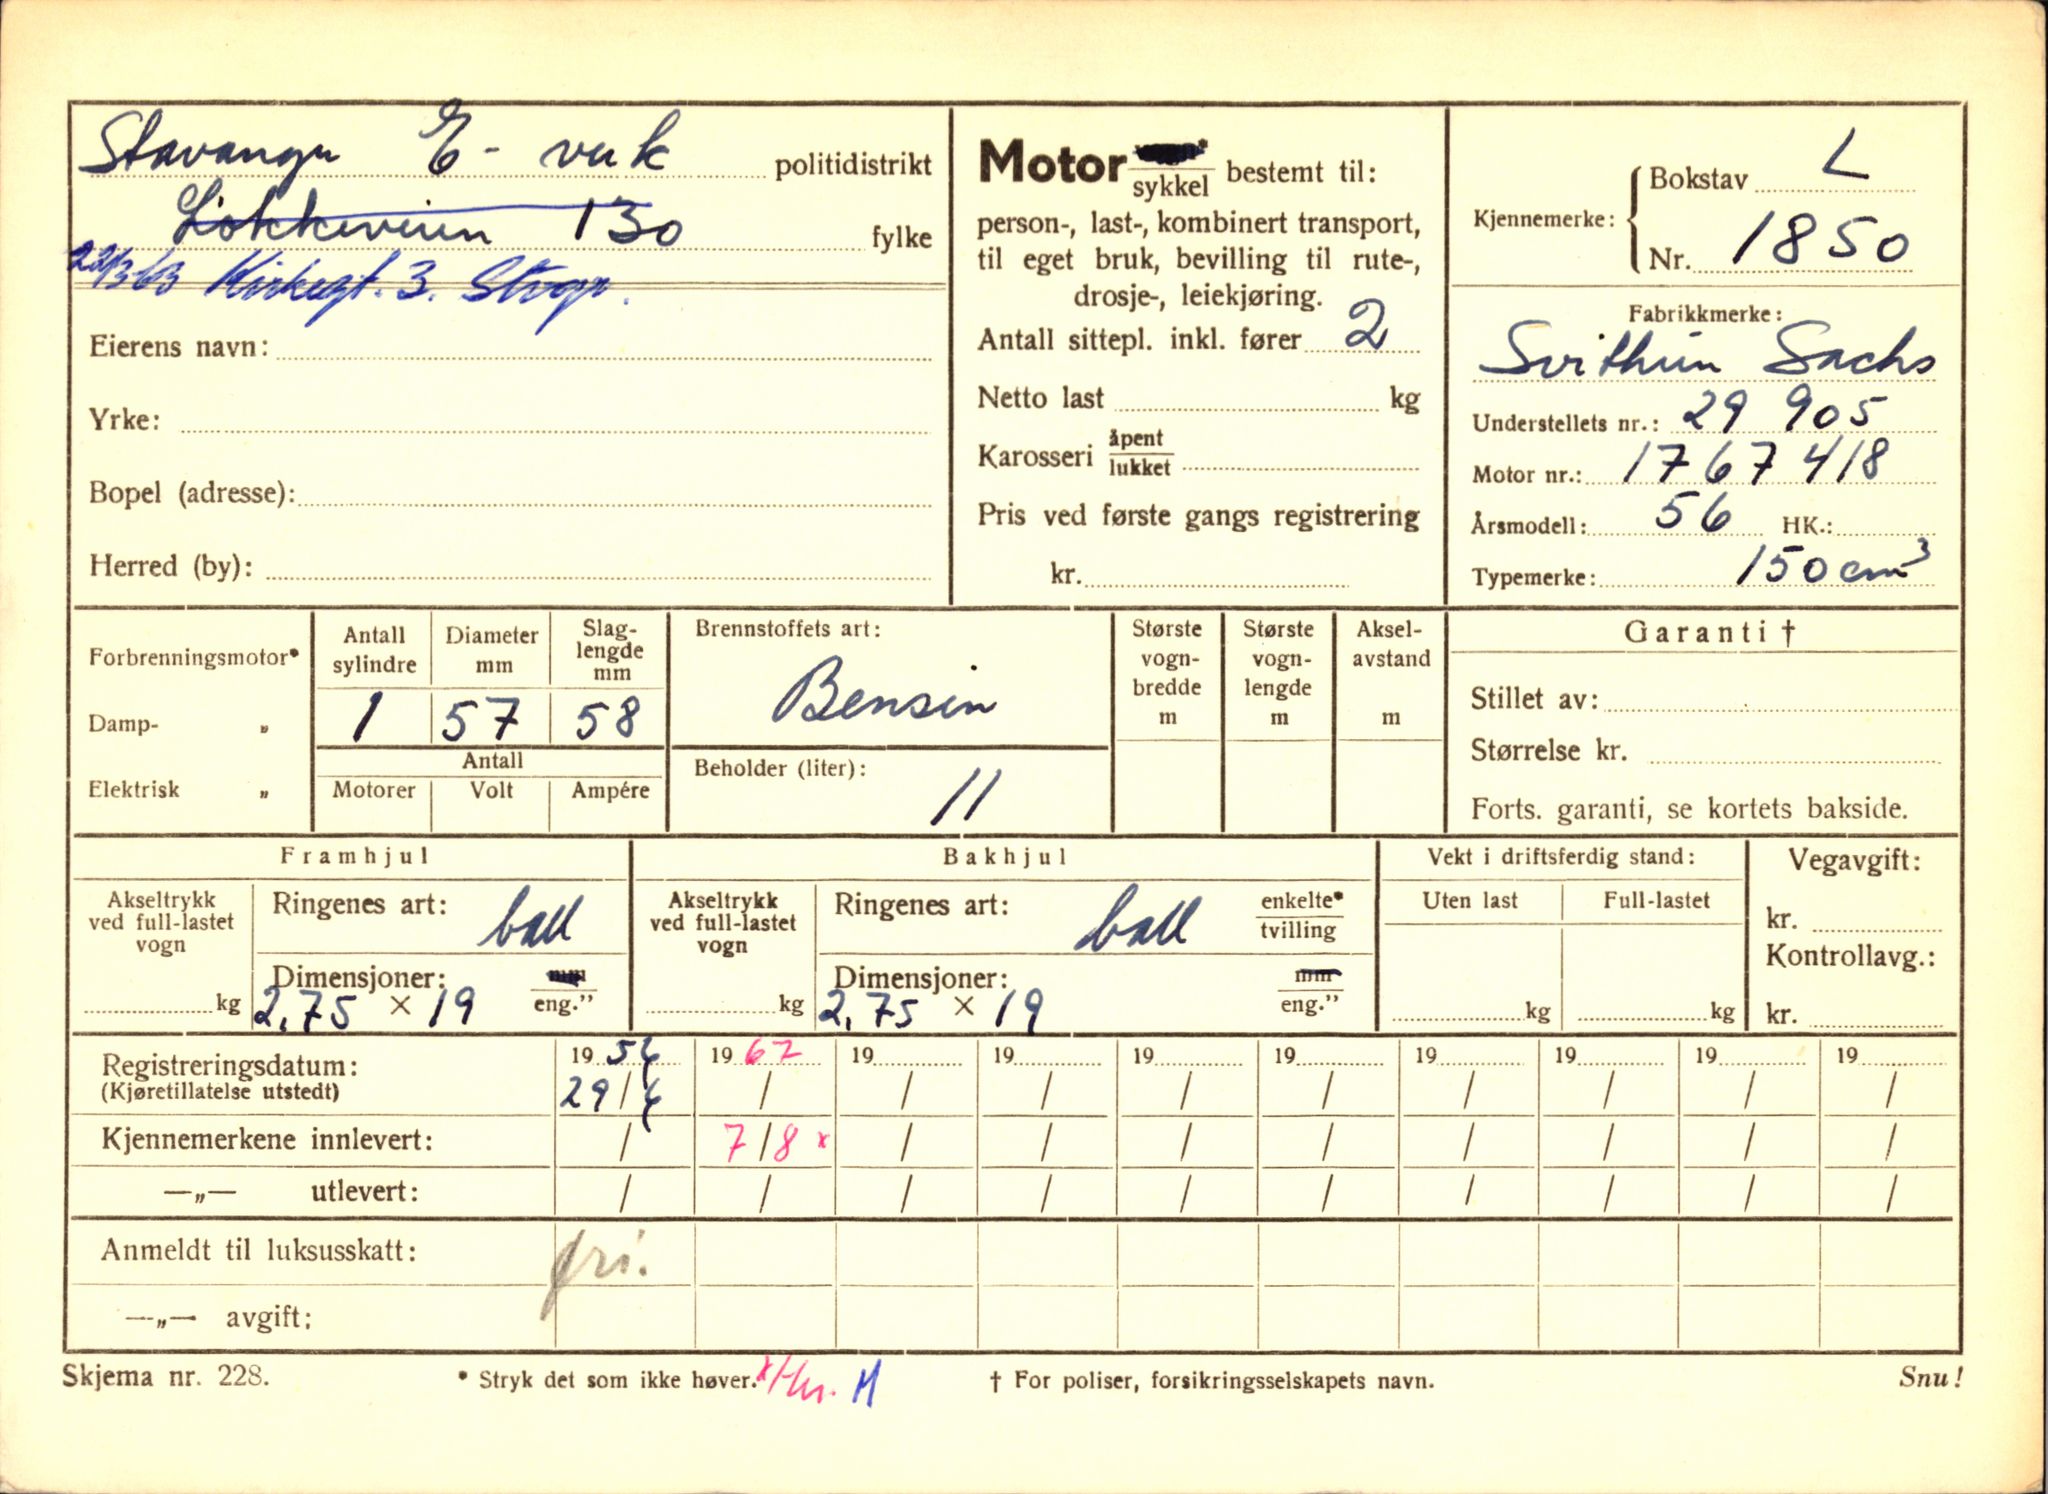 Stavanger E-verk politidistrikt
Løkkeveien 130 fylke
22/3 63 Kirkegt. 3. Stvgr.
Eierens navn:
Yrke:
Bopel (adresse):
Herred (by):
Motor sykkel bestemt til:
person-, last-, kombinert transport,
til eget bruk, bevilling til rute-,
drosje-, leiekjøring.
Antall sittepl. inkl. fører 2
Netto last kg
Karosseri åpent lukket
Pris ved første gangs registrering
kr.
Kjennemerke: Bokstav L
Nr. 1850
Fabrikkmerke:
Svithun Sachs
Understellets nr.: 29 905
Motor nr.: 1767418
Årsmodell: 56 HK.:
Typemerke: 150 cm³
Forbrenningsmotor*
Damp- „
Elektrisk „
Antall sylindre
1
Diameter mm
57
Slag-
lengde
mm
58
Antall
Motorer Volt Ampére
Brennstoffets art:
Bensin
Beholder (liter):
11
Største
vogn-
bredde
m
Største
vogn-
lengde
m
Aksel-
avstand
m
Garanti †
Stillet av:
Størrelse kr.
Forts. garanti, se kortets bakside.
Framhjul
Akseltrykk
ved full-lastet
vogn
kg
Ringenes art: ball
Dimensjoner: mm
2,75 × 19 eng.”
Bakhjul
Akseltrykk
ved full-lastet
vogn
kg
Ringenes art: ball enkelte*
tvilling
Dimensjoner: mm
2,75 × 19 eng.”
Vekt i driftsferdig stand:
Uten last Full-lastet
kg kg
Vegavgift:
kr.
Kontrollavg.:
kr.
Registreringsdatum: 19 56 19 67 19 19 19 19 19 19 19 19
(Kjøretillatelse utstedt) 29/6 / / / / / / / / /
Kjennemerkene innlevert: / 7/8 x / / / / / / / /
—„— utlevert: / / / / / / / / / /
Anmeldt til luksusskatt: fri.
—„— avgift:
Skjema nr. 228. * Stryk det som ikke høver. † For poliser, forsikringsselskapets navn. Snu!